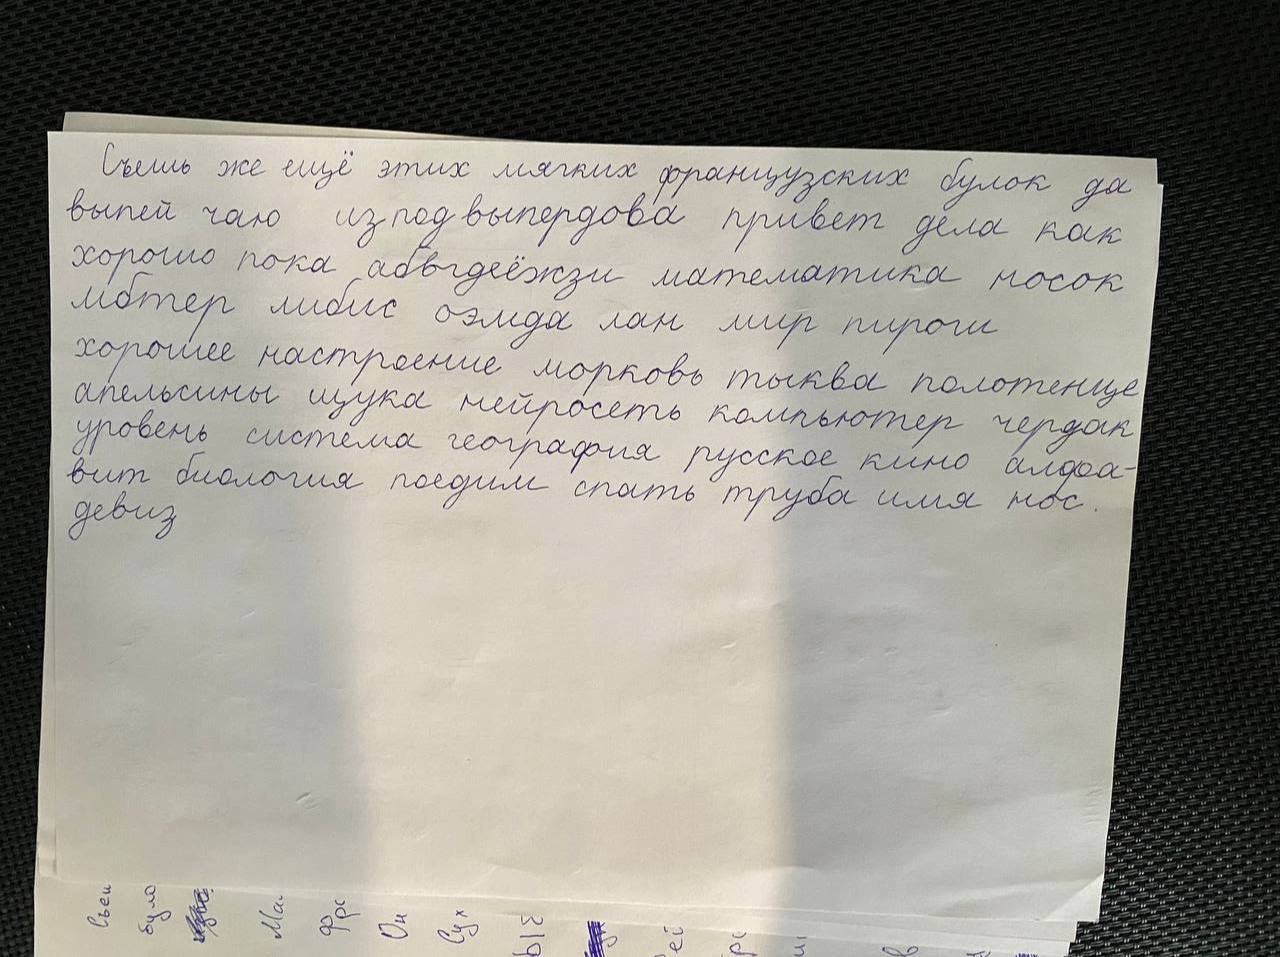 Съешь же ещё этих мягких французских булок да
выпей чаю изпод выпердова привет дела как
хорошо пока абвгдеёжзи математика носок
мбтер либис оэмда лан мир пироги
хорошее настроение морковь тыква полотенце
апельсины щука нейросеть компьютер чердак
уровень система география русское кино алфа-
вит биология поедим спать труба имя нос.
девиз